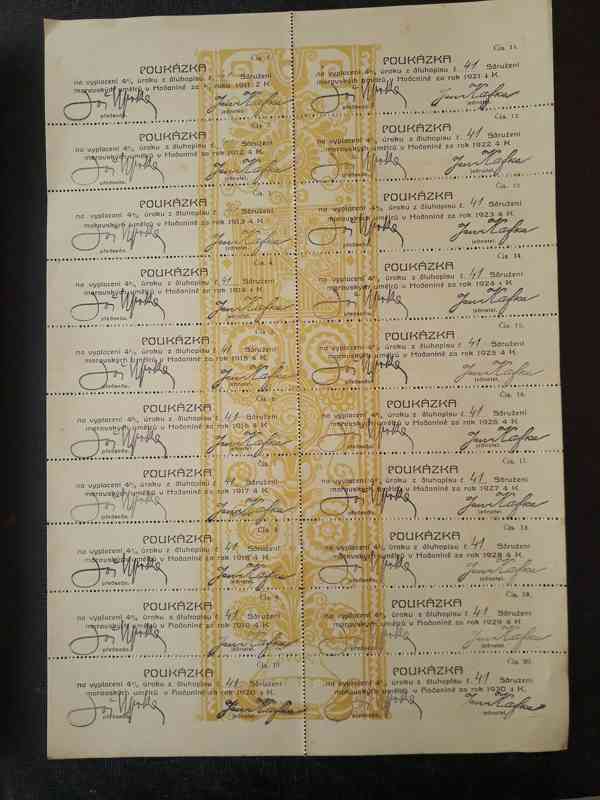 Čís. 1.
POUKÁZKA
na vyplacení 4% úroku z dluhopisu č. Sdružení
moravských umělců v Hodoníně za rok 1911 2 K
předseda. Jan Kafka
Čís.
POUKÁZKA
na vyplacení 4% úroku z dluhopisu č. Sdružení
moravských umělců v Hodoníně za rok 1912 4 K.
předseda. Jan Kafka
Čís. 3.
POUKÁZKA
na vyplacení 4% úroku z dluhopisu č. Sdružení
moravských umělců v Hodoníně za rok 1913 4 K.
předseda. Jan Kafka
Čís. 4.
POUKÁZKA
na vyplacení 4% úroku z dluhopisu č. 41 Sdružení
moravských umělců v Hodoníně za rok 1914 4 K.
předseda. Jan Kafka
POUKÁZKA
na vyplacení 4% úroku z dluhopisu č. 41 Sdružení
moravských umělců v Hodoníně za rok 1915 4 K.
předseda. Jan Kafka
POUKÁZKA
na vyplacení 4% úroku z dluhopisu č. 41 Sdružení
moravských umělců v Hodoníně za rok 1916 4 K.
předseda. Jan Kafka
Čís.
POUKÁZKA
na vyplacení 4% úroku z dluhopisu č. 41 Sdružení
moravských umělců v Hodoníně za rok 1917 4 K.
předseda. Jan Kafka
Čís. 8.
POUKÁZKA
na vyplacení 4% úroku z dluhopisu č. 41 Sdružení
moravských umělců v Hodoníně za rok 1918 4 K.
předseda. Jan Kafka
Čís. 9.
POUKÁZKA
na vyplacení 4% úroku z dluhopisu č. 41 Sdružení
moravských umělců v Hodoníně za rok 1919 4 K.
předseda. Jan Kafka
Čís. 10.
POUKÁZKA
na vyplacení 4% úroku z dluhopisu č. 41 Sdružení
moravských umělců v Hodoníně za rok 1920 4 K.
předseda. Jan Kafka
Čís. 11.
POUKÁZKA
na vyplacení 4% úroku z dluhopisu č. 41 Sdružení
moravských umělců v Hodoníně za rok 1921 4 K.
předseda. Jan Kafka
jednatel.
Čís. 12.
POUKÁZKA
na vyplacení 4% úroku z dluhopisu č. 41 Sdružení
moravských umělců v Hodoníně za rok 1922 4 K.
předseda. Jan Kafka
jednatel.
Čís. 13.
POUKÁZKA
na vyplacení 4% úroku z dluhopisu č. 41 Sdružení
moravských umělců v Hodoníně za rok 1923 4 K.
předseda. Jan Kafka
jednatel.
Čís. 14.
POUKÁZKA
na vyplacení 4% úroku z dluhopisu č. 41 Sdružení
moravských umělců v Hodoníně za rok 1924 4 K.
předseda. Jan Kafka
jednatel.
Čís. 15.
POUKÁZKA
na vyplacení 4% úroku z dluhopisu č. 41 Sdružení
moravských umělců v Hodoníně za rok 1925 4 K.
předseda. Jan Kafka
jednatel.
Čís. 16.
POUKÁZKA
na vyplacení 4% úroku z dluhopisu č. 41 Sdružení
moravských umělců v Hodoníně za rok 1926 4 K.
předseda. Jan Kafka
jednatel.
Čís. 17.
POUKÁZKA
na vyplacení 4% úroku z dluhopisu č. 41 Sdružení
moravských umělců v Hodoníně za rok 1927 4 K.
předseda. Jan Kafka
jednatel.
Čís. 18.
POUKÁZKA
na vyplacení 4% úroku z dluhopisu č. 41 Sdružení
moravských umělců v Hodoníně za rok 1928 4 K.
předseda. Jan Kafka
jednatel.
Čís. 19.
POUKÁZKA
na vyplacení 4% úroku z dluhopisu č. 41 Sdružení
moravských umělců v Hodoníně za rok 1929 4 K.
předseda. Jan Kafka
jednatel.
Čís. 20.
POUKÁZKA
na vyplacení 4% úroku z dluhopisu č. 41 Sdružení
moravských umělců v Hodoníně za rok 1930 4 K.
předseda. Jan Kafka
jednatel.